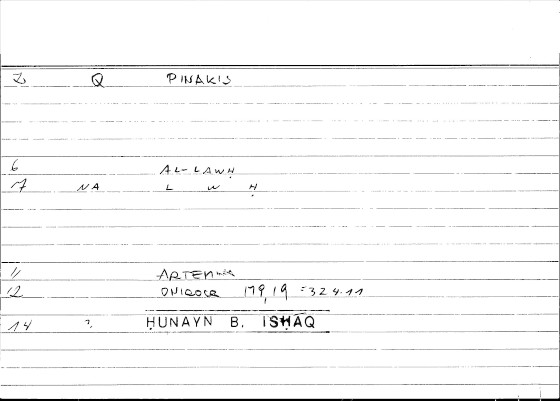 2 Q PINAKIS
6 AL-LAWḤ
7 NA L W Ḥ
11 ARTEM
12 ONIROCR 179,19 = 324.11
14 ?, ḤUNAYN B. ISḤAQ